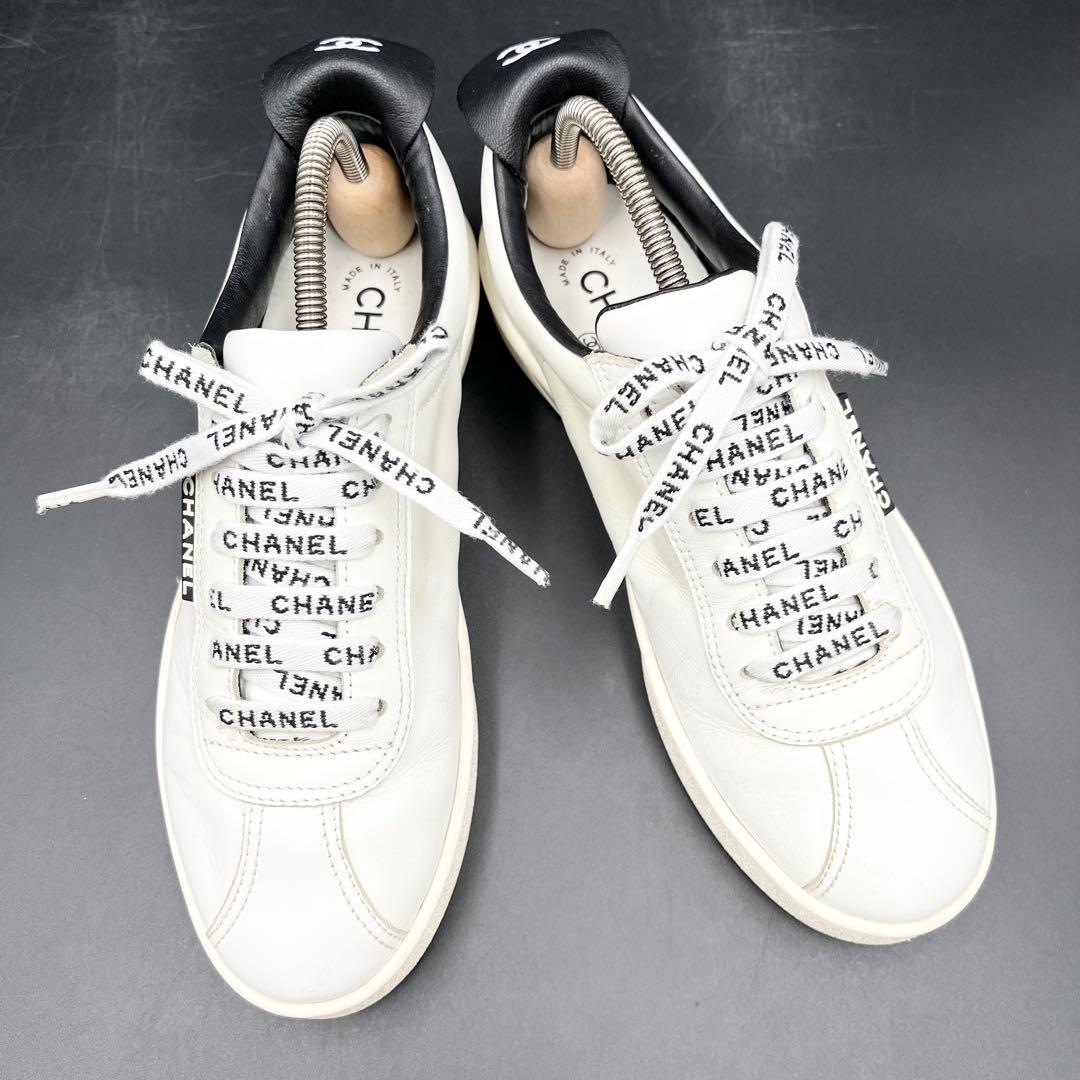 MADE IN ITALY
CH
MADE IN ITALY
CH
CHANEL
CHANEL
CHANEL
CHANEL
CHANEL
CHANEL
CHANEL
CHANEL
CHAN
ANEL CH
CHANEL
EL CHANE
ANEL CHA
CHANEL
HANEL
CHANEL
EL CH
ANEL CH
HANEL
CHANEL